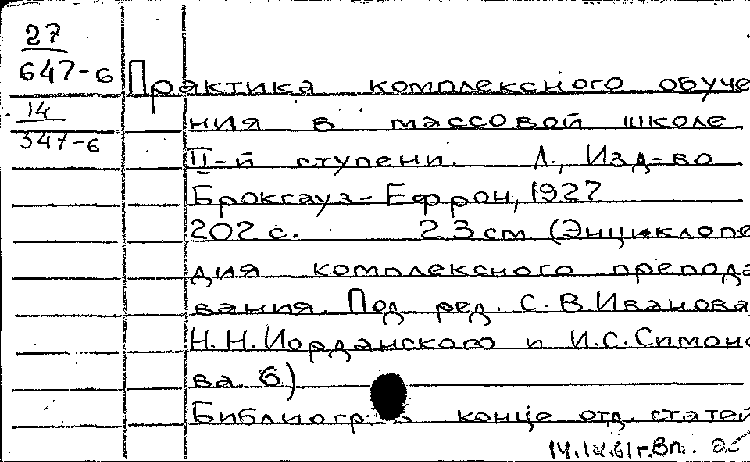 27
647-6
14
347-6
Практика комплексного обуче
ния в массовой школе
II-й ступени. Л., Изд-во
Брокгауз-Ефрон, 1927
202 с. 23 см (Энциклопе
дия комплексного препода
вания. Под ред. С.В.Иванова
Н.Н.Иорданского и И.С.Симоно
ва. 6)
Библиогр. конце отд. статей
14.IX.61г.Вп.